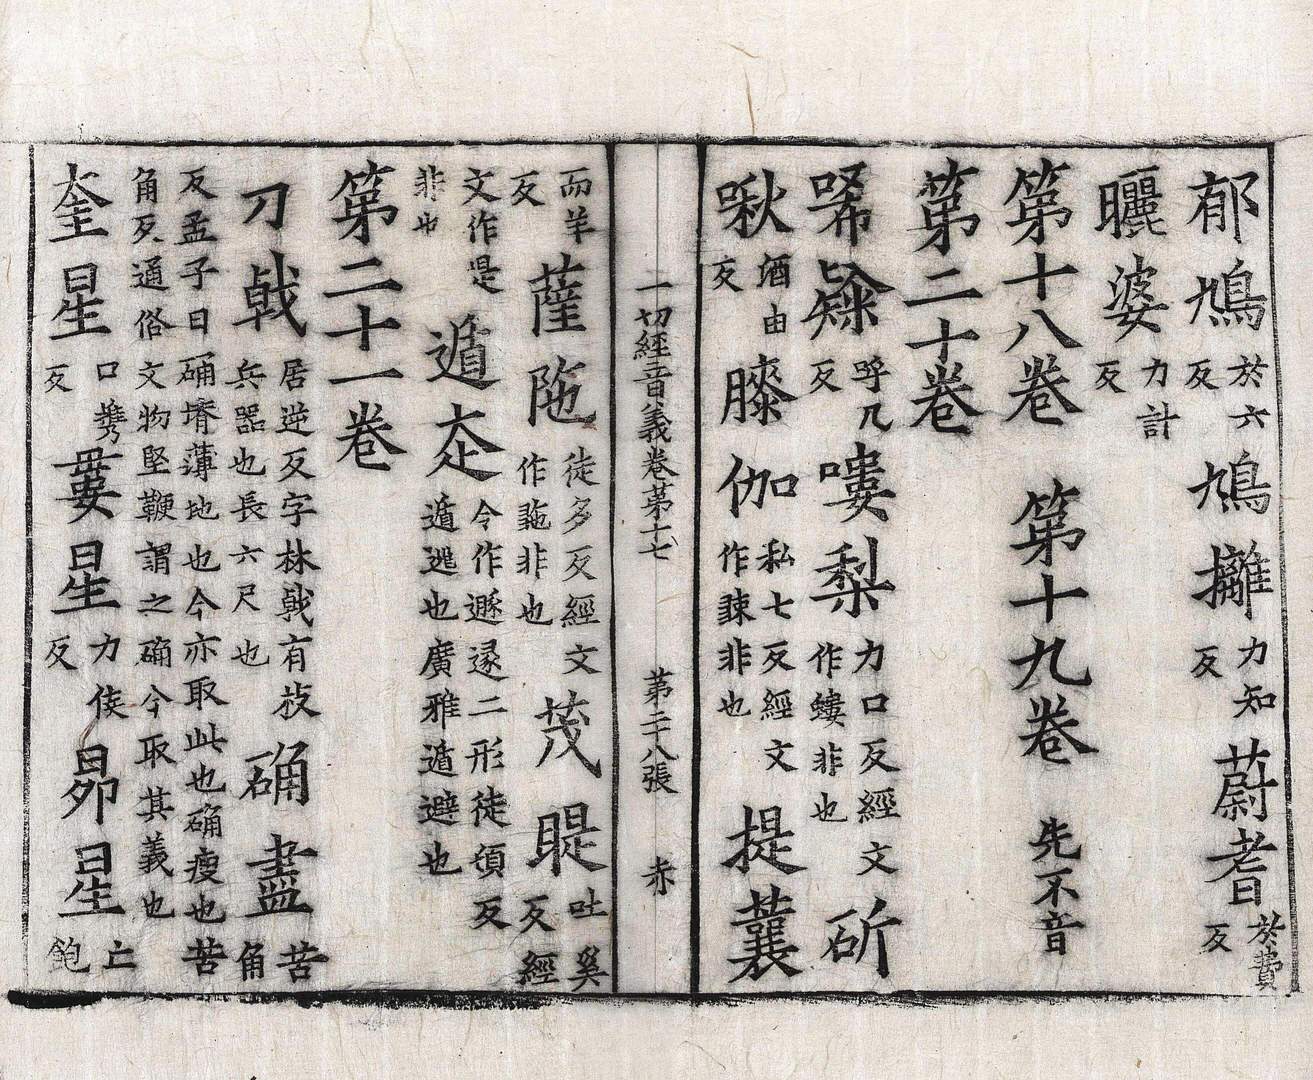 郁鳩於六反鳩攡力知反蔚耆於費反
曬婆力計反
第十八卷 第十九卷 先不音
第二十卷
呼几反嘍梨力口反經文作螻非也斫
啾酒由反膝伽私七反經文作非也提蘘
一切經音義卷第十七 第二十八張 赤
而羊反薩陁徒多反經文作非也茂睼吐奚反經
文作是非也遁走今作遯遂二形徒頓反遁逃也廣雅遁避也
第二十一卷
刀戟居逆反字林戟有枝兵器也長六尺也确盡苦角
反孟子曰确塉薄地也今亦取此也确瘦也苦角反通俗文物堅鞕謂之确今取其義也
奎星口攜反婁星力侯反昴星亡飽